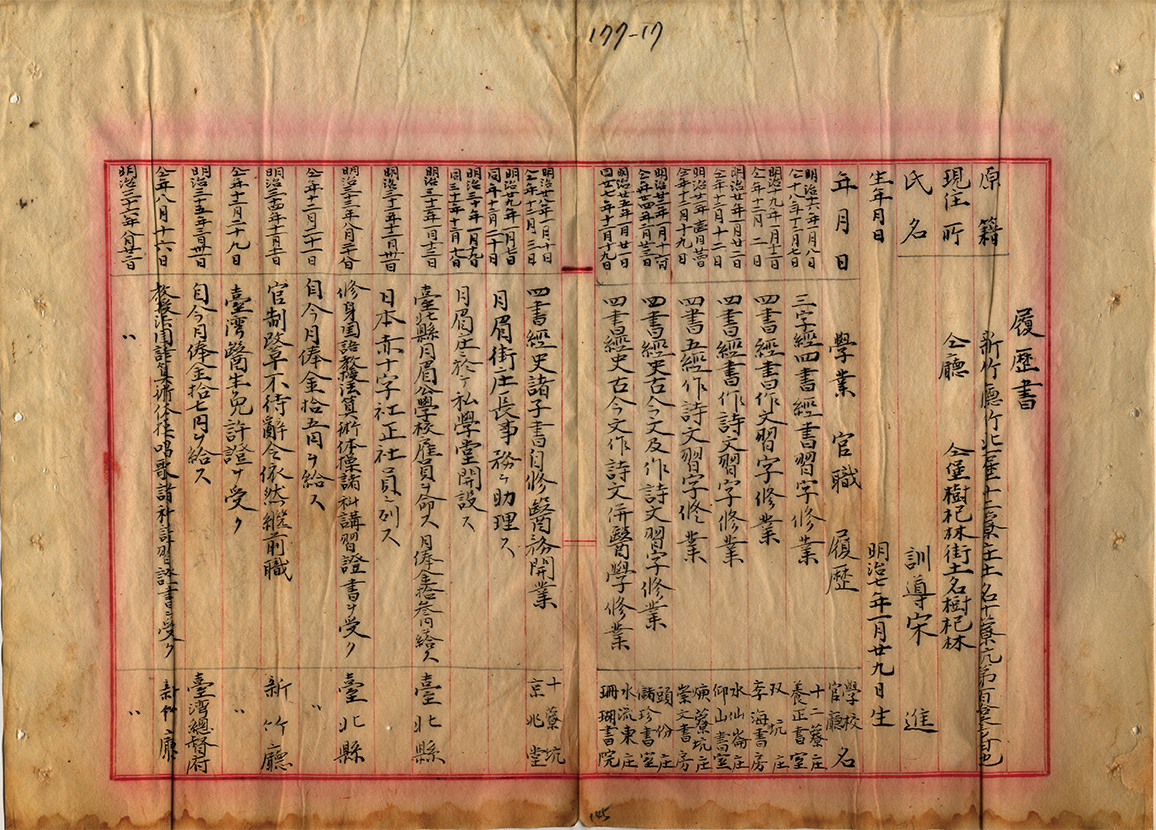 177-17
履歷書
原籍 新竹廳竹北一堡十二寮庄土名十寮坑第百
現住所 仝廳 仝堡樹杞林街土名樹杞林
氏名 訓導宋進
生年月日 明治七年一月廿九日生
年月日 學業官職履歷 學校官廳名
明治十六年一月八日 仝十八年十二月七日 三字經四書經書習字修業 十二寮庄養正書室
明治十九年一月十二日 仝年十二月二日 四書經書作文習字修業 双坑庄李海書房
明治廿年一月廿二日 仝年十二月十二日 四書經書作詩文習字修業 水仙崙庄仰山書室
仝年十二月十九日 四書五經作詩文習字修業 寮坑庄崇文書房
仝廿四年 四書經史古今文及作詩文習字修業 頭份庄諸珍書室
明治廿五年一月廿一日 四廿七年十二月十九日 四書經史古今文作詩文併醫學修業 水流東庄珊瑚書院
明治廿八年一月十日 仝年十二月三日 四書經史諸子書自修醫務開業 十寮坑京兆堂
明治廿九年一月 同年十二月二十日 月眉街庄長事務ヲ助理ス
明治三十年一月 同三十年十二月十八日 月眉庄ニ於テ私學堂開設ス
明治三十二年一月十三日 臺北縣月眉公學校雇員ヲ命ス月俸金拾叁円給ス 臺北縣
明治三十二年十二月卅一日 日本赤十字社正社員ニ列ス
明治三十三年八月二十八日 修身國語教授法算術体操諸科講習證書ヲ受ク 臺北縣
仝年十二月二十一日 自今月俸金拾五円ヲ給ス 〃
明治三十四年十一月 官制改革不待辭令依然繼前職 新竹廳
仝年十二月二十九日 臺灣醫生免許證ヲ受ク 〃
明治三十五年三月卅一日 自今月俸金拾七円ヲ給ス 臺灣總督府
仝年八月十六日 教授法国語算術体操唱歌諸科講習證書ヲ受ク 新竹廳
明治三十六年八月廿二日 〃 〃
145